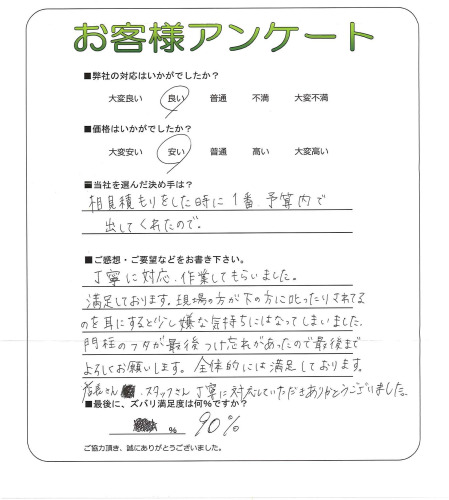 お客様アンケート
■弊社の対応はいかがでしたか?
大変良い 良い 普通 不満 大変不満
■価格はいかがでしたか?
大変安い 安い 普通 高い 大変高い
■当社を選んだ決め手は?
相見積もりをした時に1番、予算内で
出してくれたので。
■ご感想・ご要望などをお書き下さい。
丁寧に対応、作業してもらいました。
満足しております。現場の方が下の方に叱ったりされてる
のを耳にすると少し嫌な気持ちにはなってしまいました。
門柱のフタが最後つけ忘れがあったので最後まで
よろしくお願いします。全体的には満足しております。
さん、スタッフさん丁寧に対応していただきありがとうございました。
■最後に、ズバリ満足度は何%ですか?
% 90%
ご協力頂き、誠にありがとうございました。